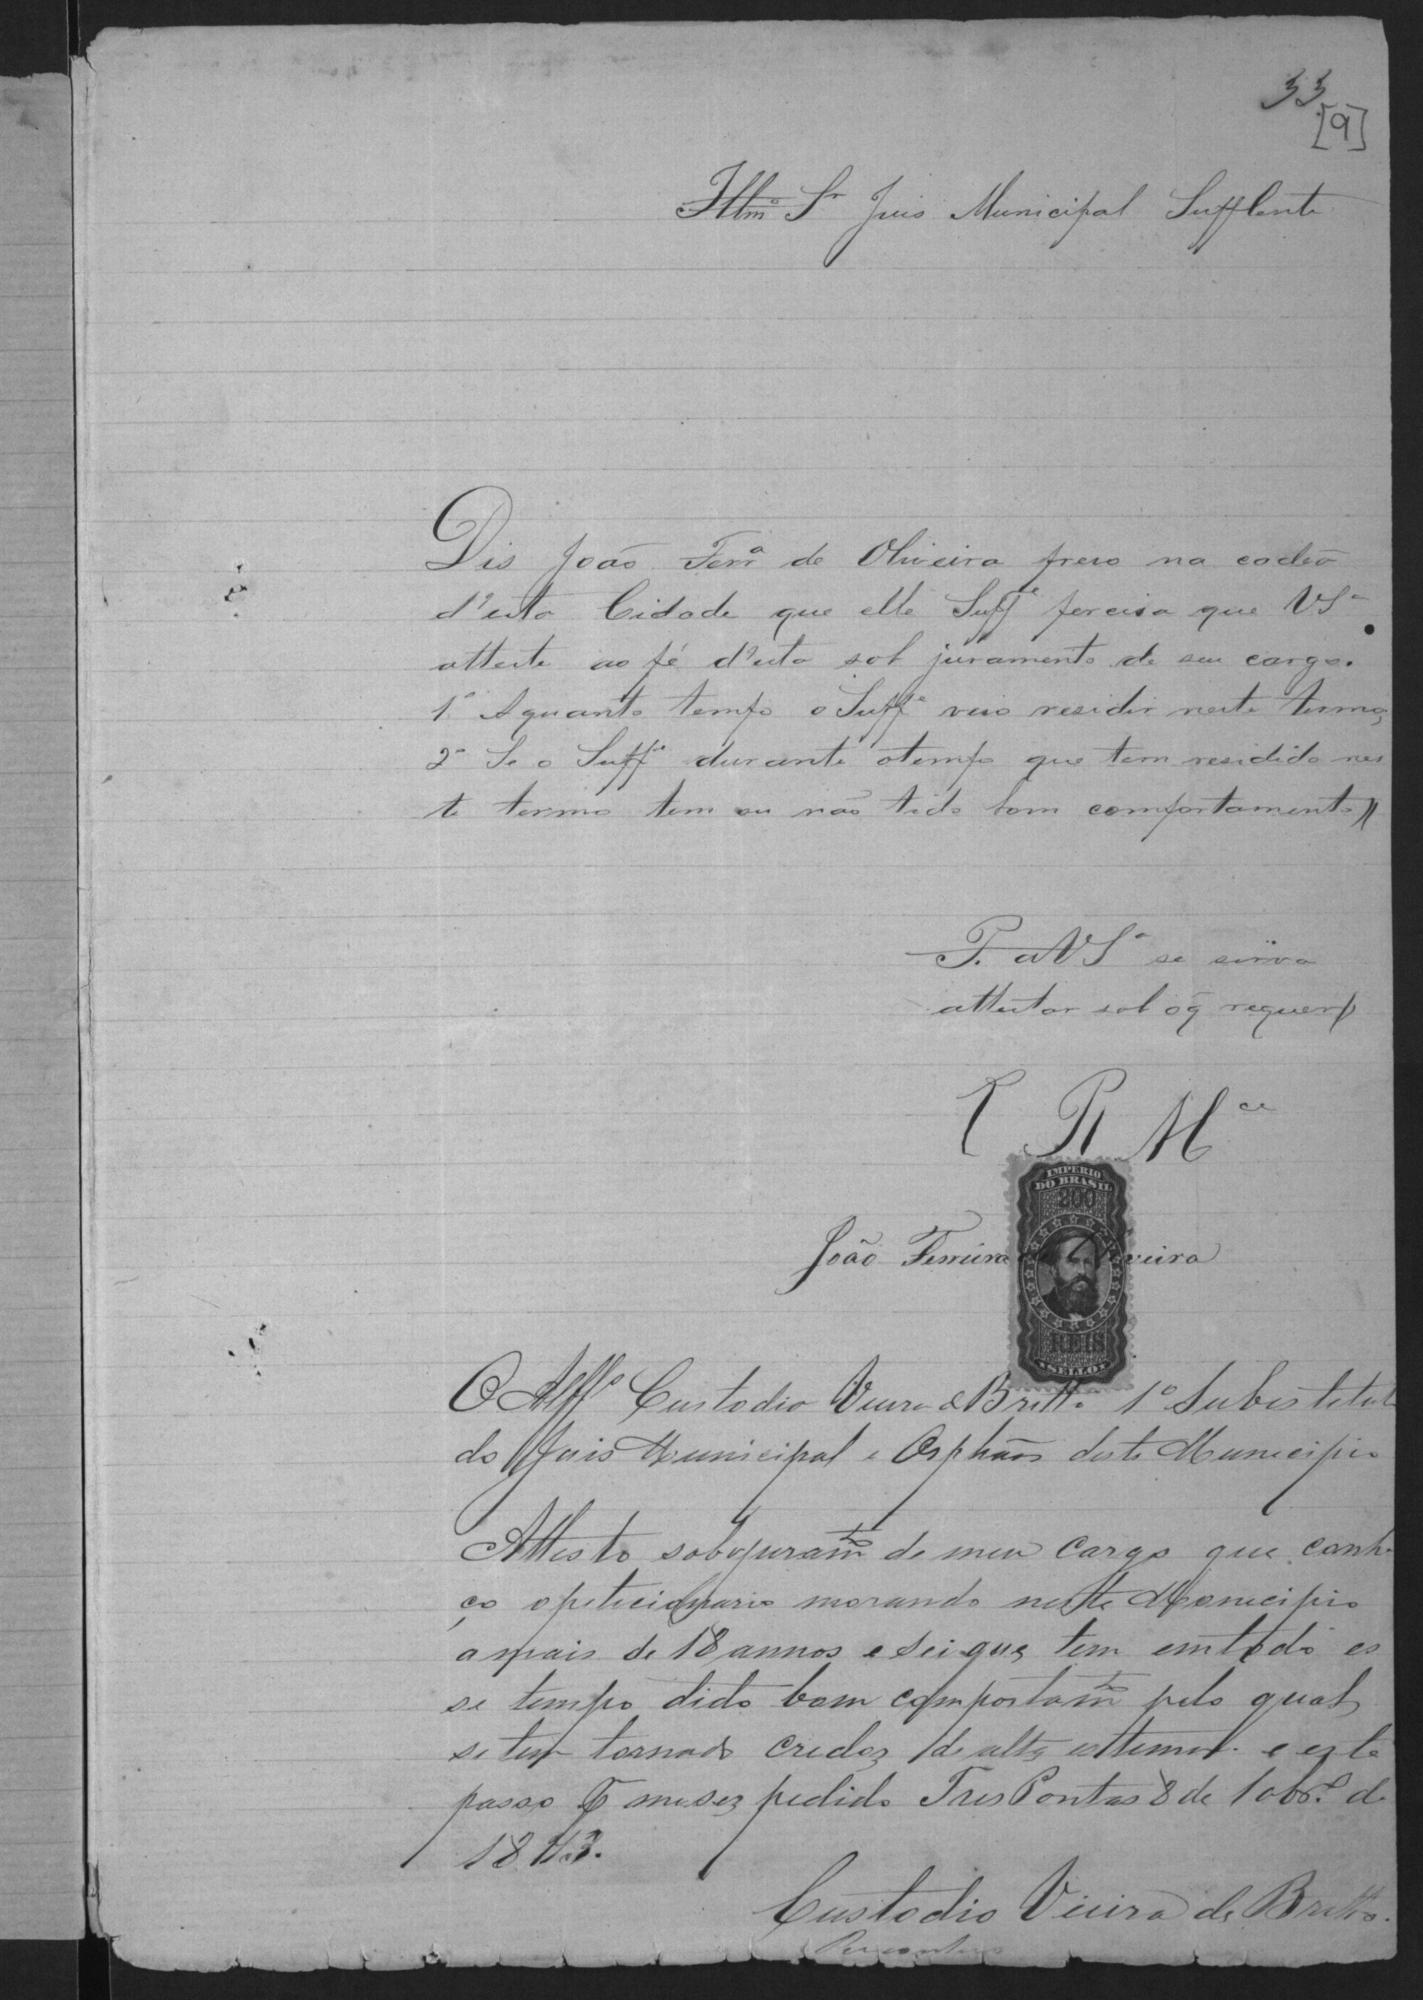 33
[9]
Illmo Sr Juis Municipal Supplente
Dis João Ferra de Oliveira preso na cadea
d'esta Cidade que elle Suppe percisa que VSa
atteste ao pé d'esta sob juramento de seu cargo.
1º A quanto tempo o Suppe veio residir neste termo,
2º Se o Suppe durante o tempo que tem residido nes
te termo tem ou não tido bom comportamento
P. a VSa se sirva
attestar sob o q̃ requer
E R Mce
IMPERIO
DO BRASIL
200
João Ferreira de Oliveira
REIS
SELLO
O Alfs Custodio Vieira de Britto 1º Subistitut
do Juis Municipal e Orphãos deste Municipio
Attesto sob o juramto de meu cargo que conhe
ço o peticionario morando neste Municipio
a mais de 18 annos e sei que tem em todo es
se tempo dido bom comportamto pelo qual
se tem tornado credor de alta esttima e este
passo por me ser pedido Tres Pontas 8 de 10brº de
1873.
Custodio Vieira de Britto.